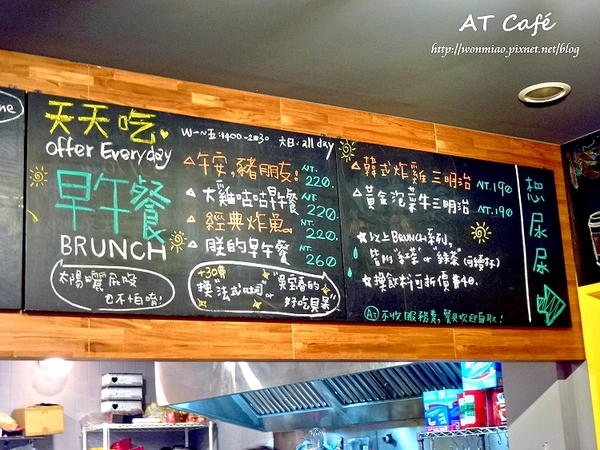 AT Café
http://wonmiao.pixnet.net/blog
天天吃
offer Everyday
早午餐
BRUNCH
太陽曬屁股
也不怕唷!
W一~五:1400~2030 六日:all day
午安,豬朋友! NT.220.
大雞咕咕早餐 NT.220.
經典炸魚. NT.220.
朕的早午餐 NT.260
+30費
換"法式吐司"
好吃貝果"
韓式炸雞三明治 NT.190
黃金泡菜牛三明治 NT.190
以上BRUNCH系列,
皆附"紅茶"or"綠茶"(可續杯)
換飲料可折價$40.
不收服務費,餐具歡迎自取!
想尿尿